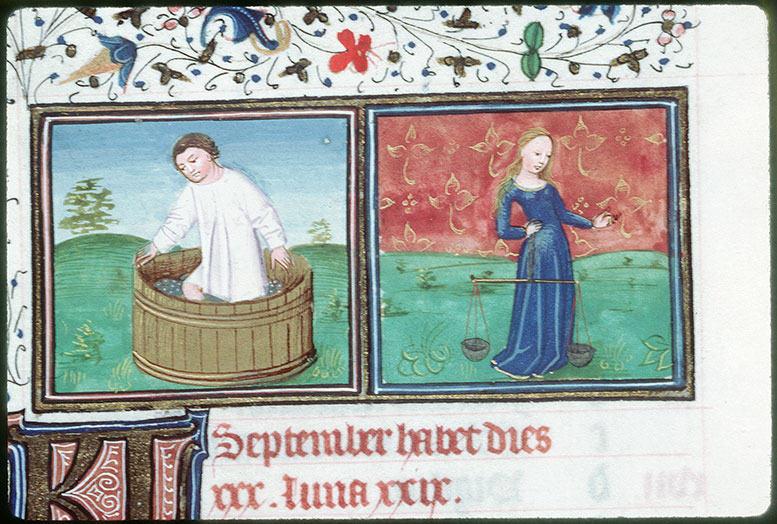 KL
September habet dies
xxx. luna xxix.